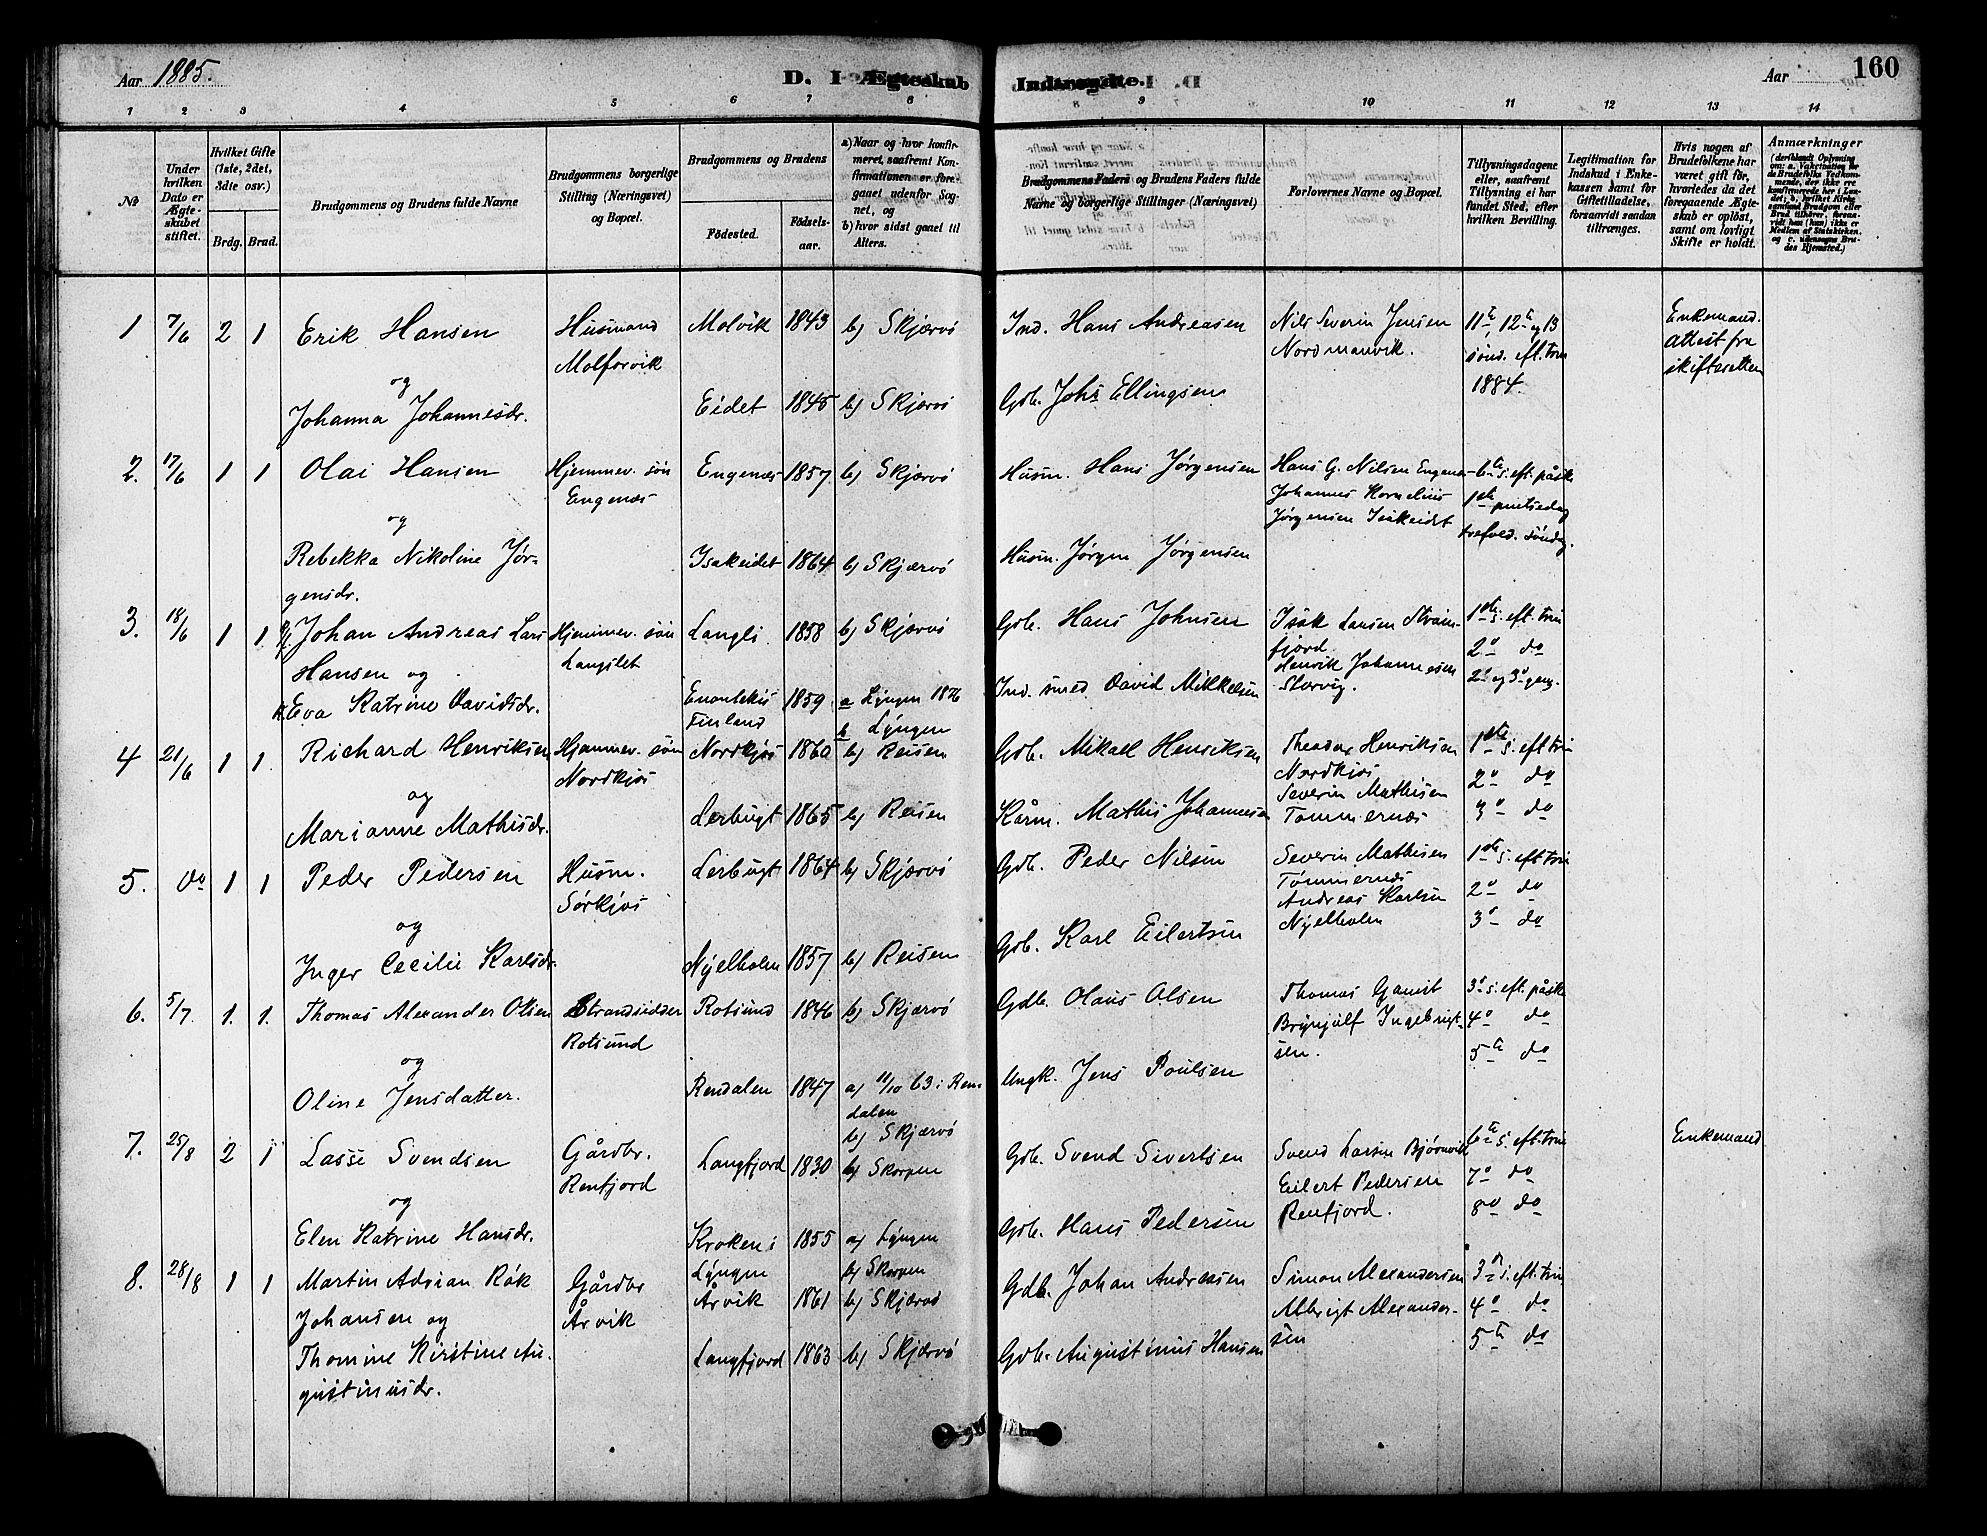 Aar 1885.
D. Ægteskab
Indtrengte.
Aar
160
1 2 3 4 5 6 7 8 9 10 11 12 13 14
No
Under hvilken Dato er Ægteskabet stiftet.
Hvilket Gifte (1ste, 2det, 3die osv.)
Brdg. Brud.
Brudgommens og Brudens fulde Navne
Brudgommens borgerlige Stilling (Næringsvei) og Bopæl.
Brudgommens og Brudens
Fødested.
Fødselsaar.
a) Naar og hvor konfirmeret, saafremt Konfirmationen er foregaaet udenfor Sognet, og
b) hvor sidst gaaet til Alters.
Brudgommens Faders og Brudens Faders fulde Navne og borgerlige Stillinger (Næringsvei)
Forlovernes Navne og Bopæl.
Tillysningsdagene eller, saafremt Tillysning ei har fundet Sted, efter hvilken Bevilling.
Legitimation for Indskud i Enkekassen samt for Giftetilladelse, forsaavidt saadan tiltrænges.
Hvis nogen af Brudefolkene har været gift før, hvorledes da det foregaaende Ægteskab er opløst, samt om lovligt Skifte er holdt.
Anmærkninger
1 7/6 2 1 Erik Hansen Husmand Molforvik Molvik 1843 b) Skjærvö Ind. Hans Andreasen Nils Severin Jensen Nordmanvik. 11te, 12te og 13 sönd. eft. trin 1884. Enkemand. attest fra skifteretten
og
Johanna Johannesdr. Eidet 1845 b) Skjærvö Gdb. Johs Ellingsen
2. 17/6 1 1 Olai Hansen Hjemmev. sön Engenæs Engenæs 1857 b) Skjærvö Husm. Hans Jørgensen Hans G. Nilsen Engenæs Johannes Kornelius Jørgensen Isakeidet 6te s. eft. påske 1ste pintsedag trefold. söndag.
og
Rebekka Nikoline Jørgensdr. Isakeidet 1864 b) Skjærvö Husm. Jørgen Jørgensen
3. 18/6 1 1. Johan Andreas Lars Hansen og Hjemmev. sön Langslet Langsli 1858 b) Skjærvö Gdb. Hans Johnsen Isak Larsen Stramfjord Henrik Johannessen Storvig. 1ste s. eft. trin 2o do 2o og 3o gang.
Eva Katrine Davidsdr. Enontekis Finland 1859 a Lyngen 1876 b Lyngen Ind. smed David Mikkelsen
4 21/6 1 1. Richard Henriksen Hjemmev. sön Nordkjos Nordkjos 1860 b) Reisen Gdb. Mikael Henriksen Theodor Henriksen Nordkjos Severin Mathisen Tömmernæs 1ste s. eft trin 2o do 3o do
og
Marianne Mathisdr. Lerbugt 1865 b) Reisen Kårm. Mathis Johannesen
5. do 1 1 Peder Pedersen Husm. Sörkjos Lerbugt 1864 b) Skjærvö Gdb. Peder Nilsen Severin Mathisen Tömmernæs Andreas Karlsen Nyelholen 1ste s. eft trin 2o do 3o do
og
Inger Cecilie Karlsdr. Nyelholen 1857 b) Reisen Gdb. Karl Eilertsen
6. 5/7. 1. 1. Thomas Alexander Olsen Strandsidder Rotsund Rotsund 1846 b) Skjærvö Gdb. Olaus Olsen Thomas Gamst Brynjulf Ingebrigtsen. 3o s. eft. påske 4o do 5te do
og
Oline Jensdatter. Rendalen 1847 a) 11/10 63 i Rendalen b) Skjærvö Ungk. Jens Poulsen
7. 25/8 2 1 Lasse Svendsen Gårdbr. Renfjord Langfjord 1830 b) Skorpen Gdb. Svend Sivertsen Svend Larsen Bjørnvik Eilert Pedersen Renfjord. 6te s. eft. trin 7o do 8o do Enkemand
og
Elen Katrine Hansdr. Kroken i Lyngen 1855 a) Lyngen b) Skorpen Gdb. Hans Pedersen
8. 28/8 1 1 Martin Adrian Rök Johansen og Gårdbr Årvik Årvik 1861 b) Skjærvö Gdb. Johan Andreasen Simon Alexandersen Albrigt Alexandersen 3o s. eft. trin 4o do 5te do
Thomine Kirstine Augustinusdr. Langfjord 1863 b) Skjærvö Gdb. Augustinus Hansen